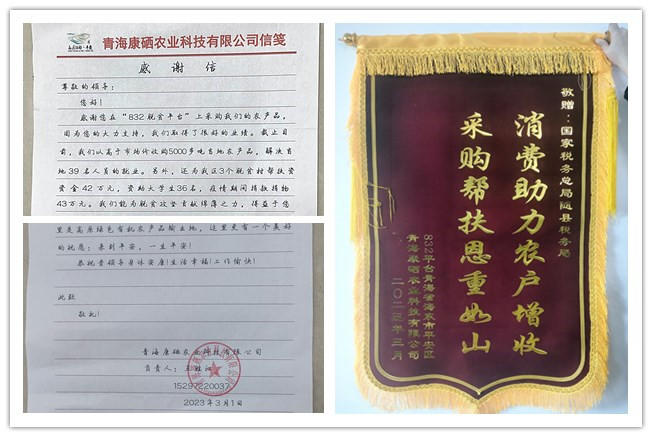 青海康硒农业科技有限公司信笺
感谢信
尊敬的领导：
您好！
感谢您在“832脱贫平台”上采购我们的农产品，
因为您的大力支持，我们取得了很好的业绩。截止目
前，我们以高于市场价收购5000多吨当地农产品，解决当
地39名人员的就业。另外，还为我区3个脱贫村帮扶资
资金42万元，资助大学生36名，疫情期间捐款捐物
43万元。我们能为脱贫攻坚贡献绵薄之力，得益于您
里是高原绿色有机农产品输出地，这里更有一个美好
的祝愿：来到平安，一生平安！
恭祝贵领导身体安康！生活幸福！工作愉快！
此致
敬礼！
青海康硒农业科技有限公司
负责人：
15297220037
2023年3月1日
敬赠：国家税务总局随县税务局
消费助力农户增收
采购帮扶恩重如山
832平台青海省海东市平安区
青海康硒农业科技有限公司
二〇二三年三月